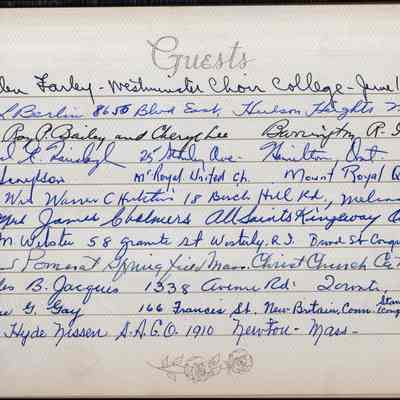 Guests
Farley - Westminster Choir College - June
Berlin 8650 Blvd East, Hudson Heights N
Roy P. Bailey and Cheryl Lee Barrington R. I.
25 Stanley Ave. Hamilton, Ont.
Mt Royal United Ch. Mount Royal Q
Mrs Warren C Hutchins 18 Birch Hill Rd., Melrose
Mrs James Chalmers All Saints Kingsway
M Webster 58 granite st Westerly R.I. Broad St Cong
Pomerat Springfield Mass. Christ Church Ca
es B. Jacques 1338 Avenue Rd. Toronto,
G. Gay 166 Francis St., New Britain, Conn.
Hyde Nissen S.A.G.O. 1910 Newton - Mass -